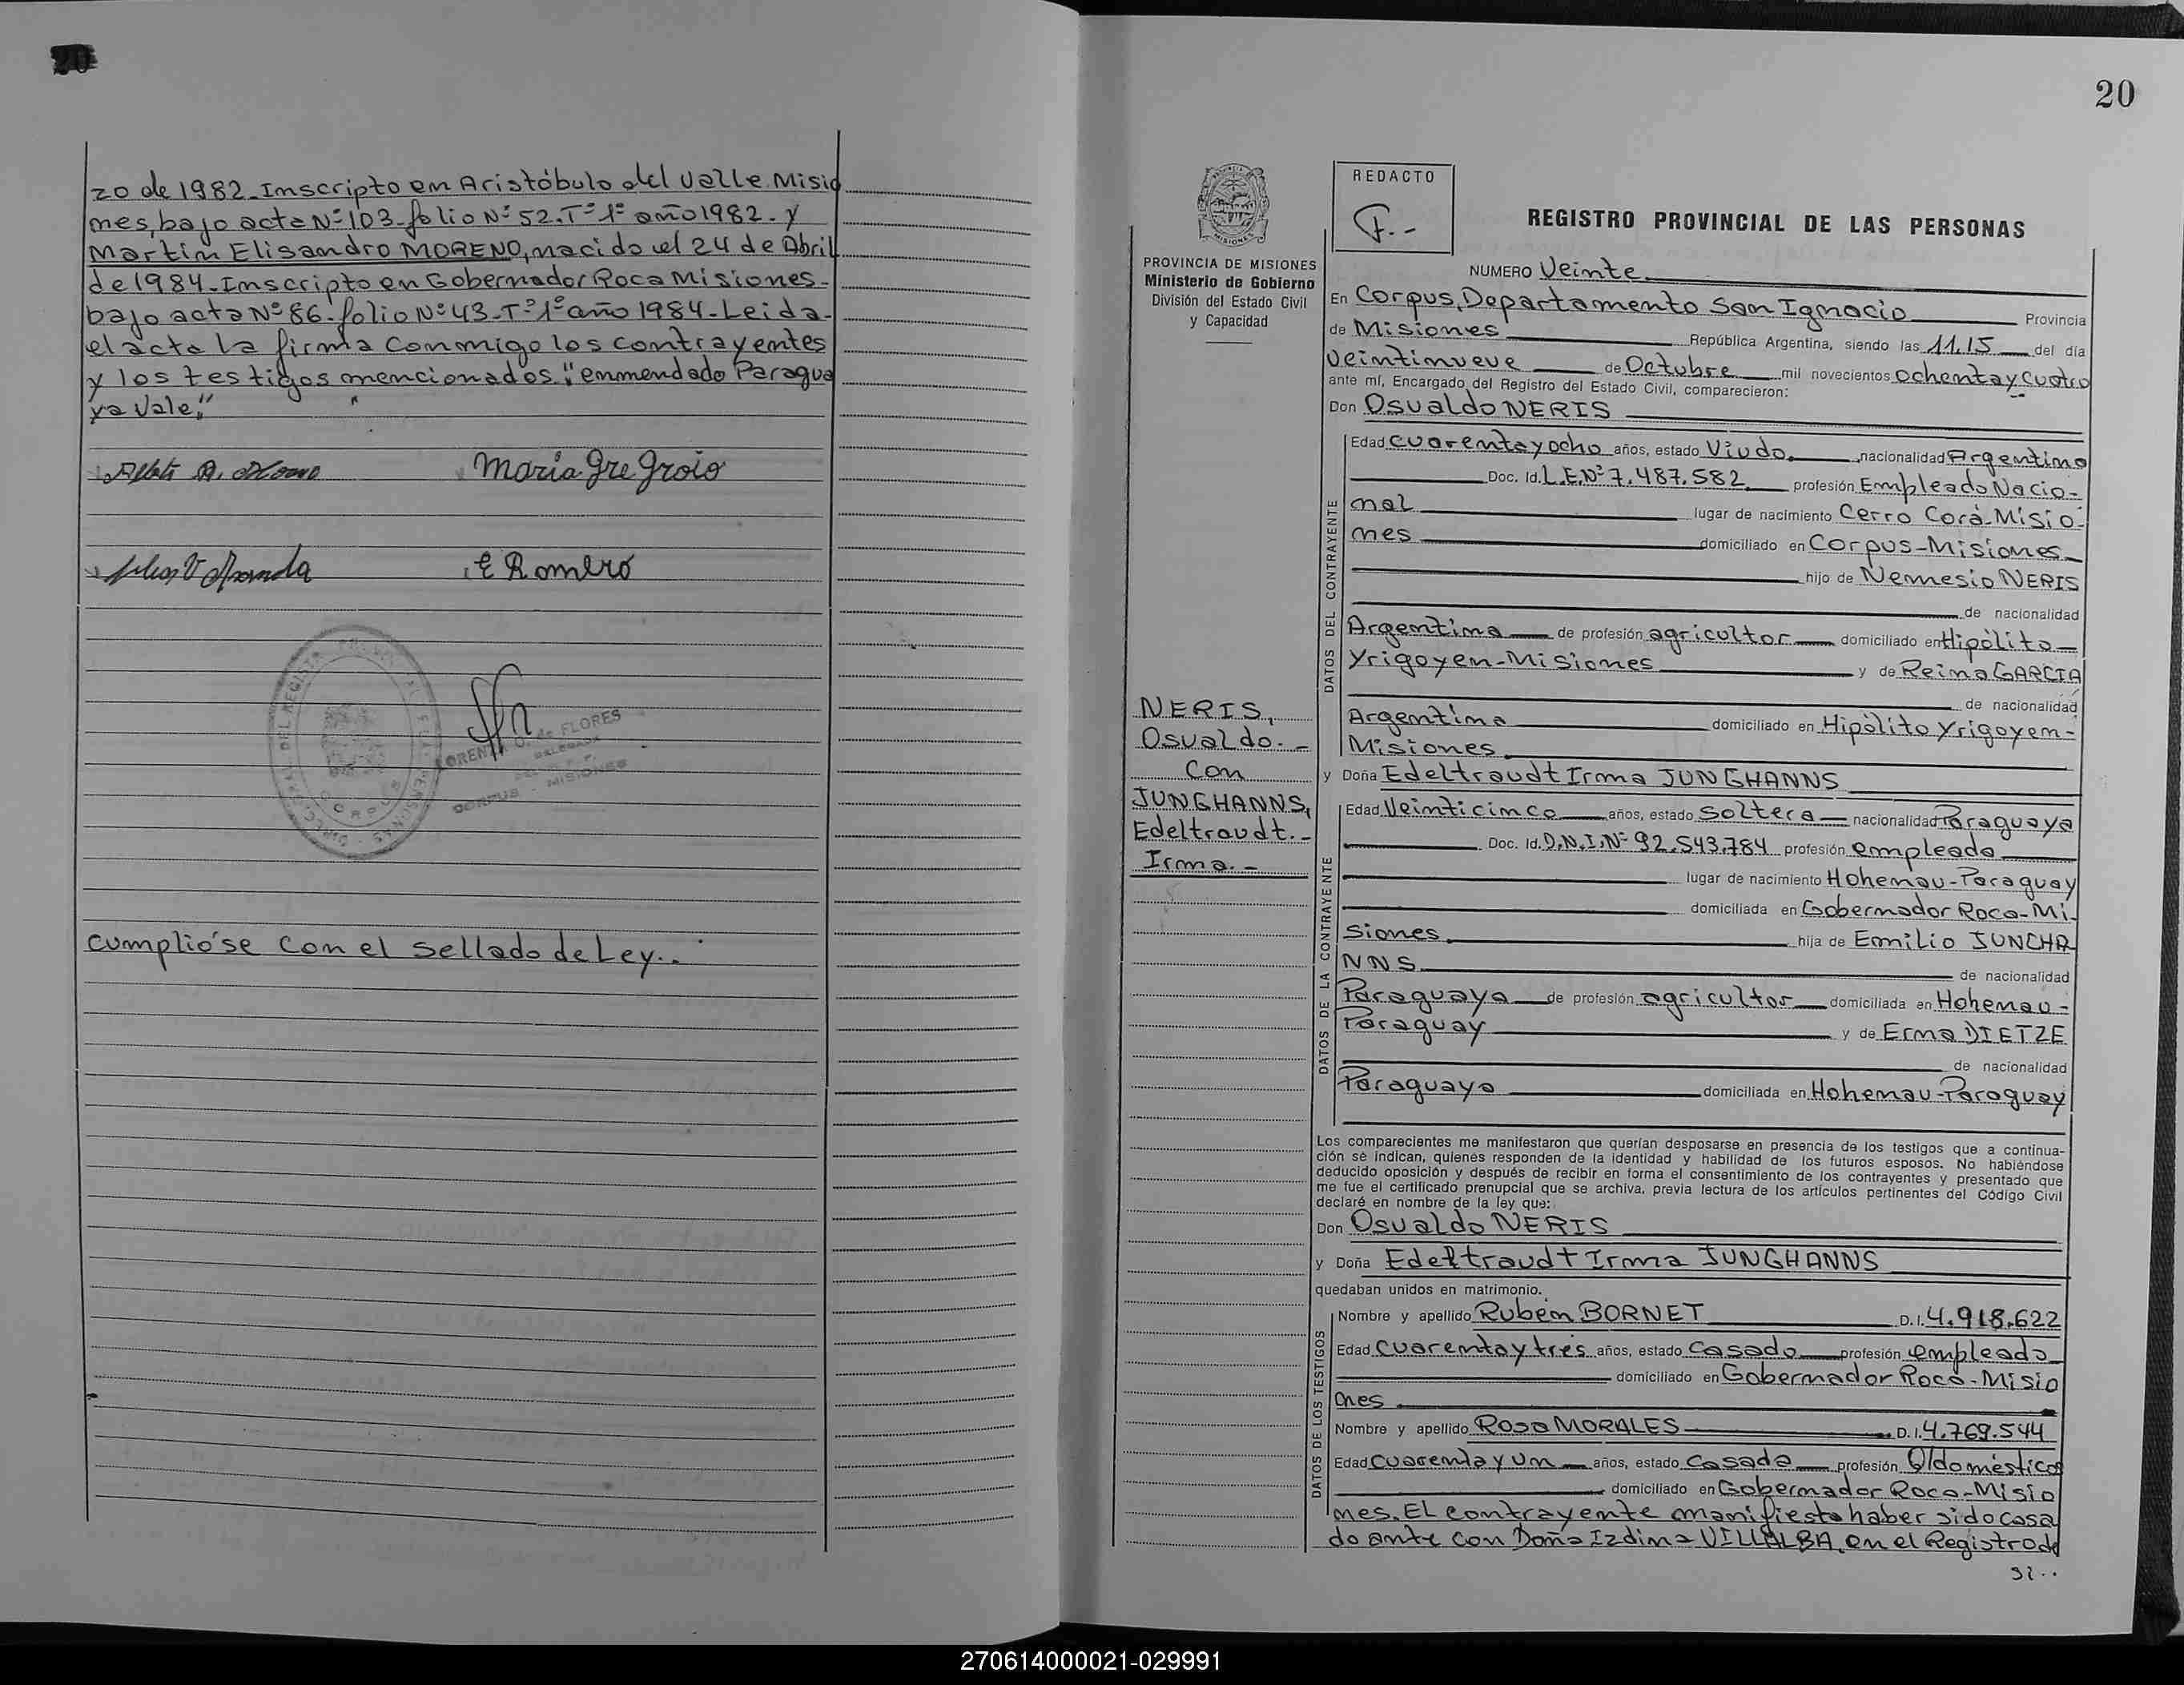 20
zo de 1982_Inscripto en Aristóbulo del Valle Misio
nes, bajo acta Nº 103-folio Nº 52.Tº 1º año 1982. y
Martín Elisandro MORENO, nacido el 24 de Abril
de 1984-Inscripto en Gobernador Roca Misiones-
bajo acta Nº 86-folio Nº 43-Tº 1º año 1984-Leida-
el acta la firma conmigo los contrayentes
y los testigos mencionados "enmendado Paragua
ya Vale"
maria Gre Groio
E Romero
DE FLORES
DELEGADA
CORPUS - MISIONES
cumplióse con el sellado de Ley.-
20
REDACTO
F.-
REGISTRO PROVINCIAL DE LAS PERSONAS
MISIONES
PROVINCIA DE MISIONES
Ministerio de Gobierno
División del Estado Civil
y Capacidad
NERIS,
Osvaldo.-
Con
JUNGHANNS,
Edeltraudt.-
Irma.-
NUMERO Veinte
En Corpus, Departamento San Ignacio Provincia
de Misiones República Argentina, siendo las 11.15 del día
veintinueve de Octubre mil novecientos ochenta y cuatro
ante mí, Encargado del Registro del Estado Civil, comparecieron:
Don Osvaldo NERIS
DATOS DEL CONTRAYENTE
Edad cuarenta y ocho años, estado Viudo nacionalidad Argentino
Doc. Id. L.E.Nº 7.487.582 profesión Empleado Nacio-
nal lugar de nacimiento Cerro Corá-Misio-
nes domiciliado en Corpus-Misiones
hijo de Nemesio NERIS
de nacionalidad
Argentina de profesión agricultor domiciliado en Hipólito
Yrigoyen-Misiones y de Reina GARCIA
de nacionalidad
Argentina domiciliado en Hipólito Yrigoyen-
Misiones
y Doña Edeltraudt Irma JUNGHANNS
DATOS DE LA CONTRAYENTE
Edad Veinticinco años, estado Soltera nacionalidad Paraguaya
Doc. Id. D.N.I.Nº 92.543.784 profesión empleada
lugar de nacimiento Hohenau-Paraguay
domiciliada en Gobernador Roca-Mi-
siones hija de Emilio JUNGHA
NNS de nacionalidad
Paraguaya de profesión agricultor domiciliada en Hohenau-
Paraguay y de Erma DIETZE
de nacionalidad
Paraguaya domiciliada en Hohenau-Paraguay
Los comparecientes me manifestaron que querían desposarse en presencia de los testigos que a continua-
ción se indican, quienes responden de la identidad y habilidad de los futuros esposos. No habiéndose
deducido oposición y después de recibir en forma el consentimiento de los contrayentes y presentado que
me fue el certificado prenupcial que se archiva, previa lectura de los artículos pertinentes del Código Civil
declaré en nombre de la ley que:
Don Osvaldo NERIS
y Doña Edeltraudt Irma JUNGHANNS
quedaban unidos en matrimonio.
DATOS DE LOS TESTIGOS
Nombre y apellido Rubén BORNET D.I. 4.918.622
Edad cuarenta y tres años, estado Casado profesión empleado
domiciliado en Gobernador Roca-Misio
nes
Nombre y apellido Rosa MORALES D.I. 4.769.544
Edad cuarenta y un años, estado Casada profesión Q/domésticos
domiciliado en Gobernador Roca-Misio
nes. El contrayente manifiesta haber sido casa
do ante con Doña Izdina VILLALBA, en el Registro de
si..
270614000021-029991